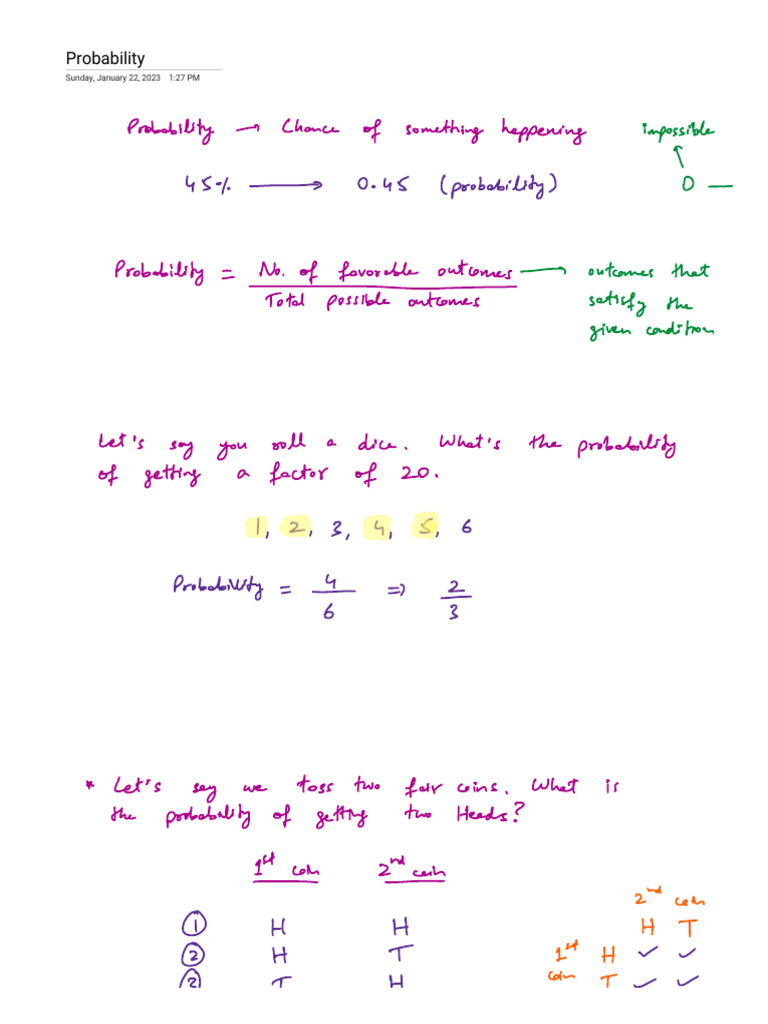 Probability
Sunday, January 22, 2023 1:27 PM
Probability → Chance of something happening impossible
45% → 0.45 (probability) 0 —
Probability = No. of favorable outcomes → outcomes that
Total possible outcomes satisfy the
given condition
Let's say you roll a dice. What's the probability
of getting a factor of 20.
1, 2, 3, 4, 5, 6
Probability = 4/6 => 2/3
* Let's say we toss two fair coins. What is
the probability of getting two Heads?
1st coin 2nd coin
2nd coin
① H H H T
② H T 1st H ✓ ✓
T H coin T ✓ ✓